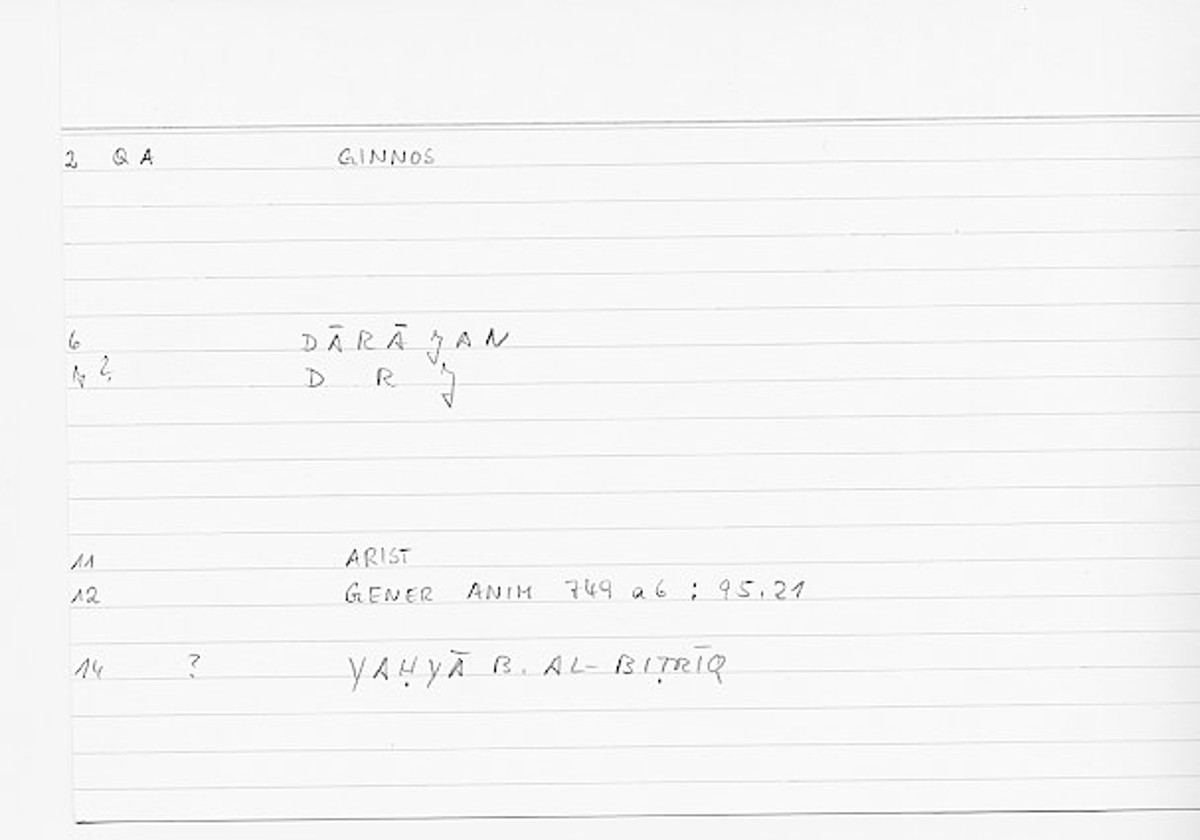 2 Q A GINNOS
6 DĀRĀ AN
? D R
11 ARIST
12 GENER ANIM 749 a 6 : 95.21
14 ? YAḤYĀ B. AL-BIṬRĪQ